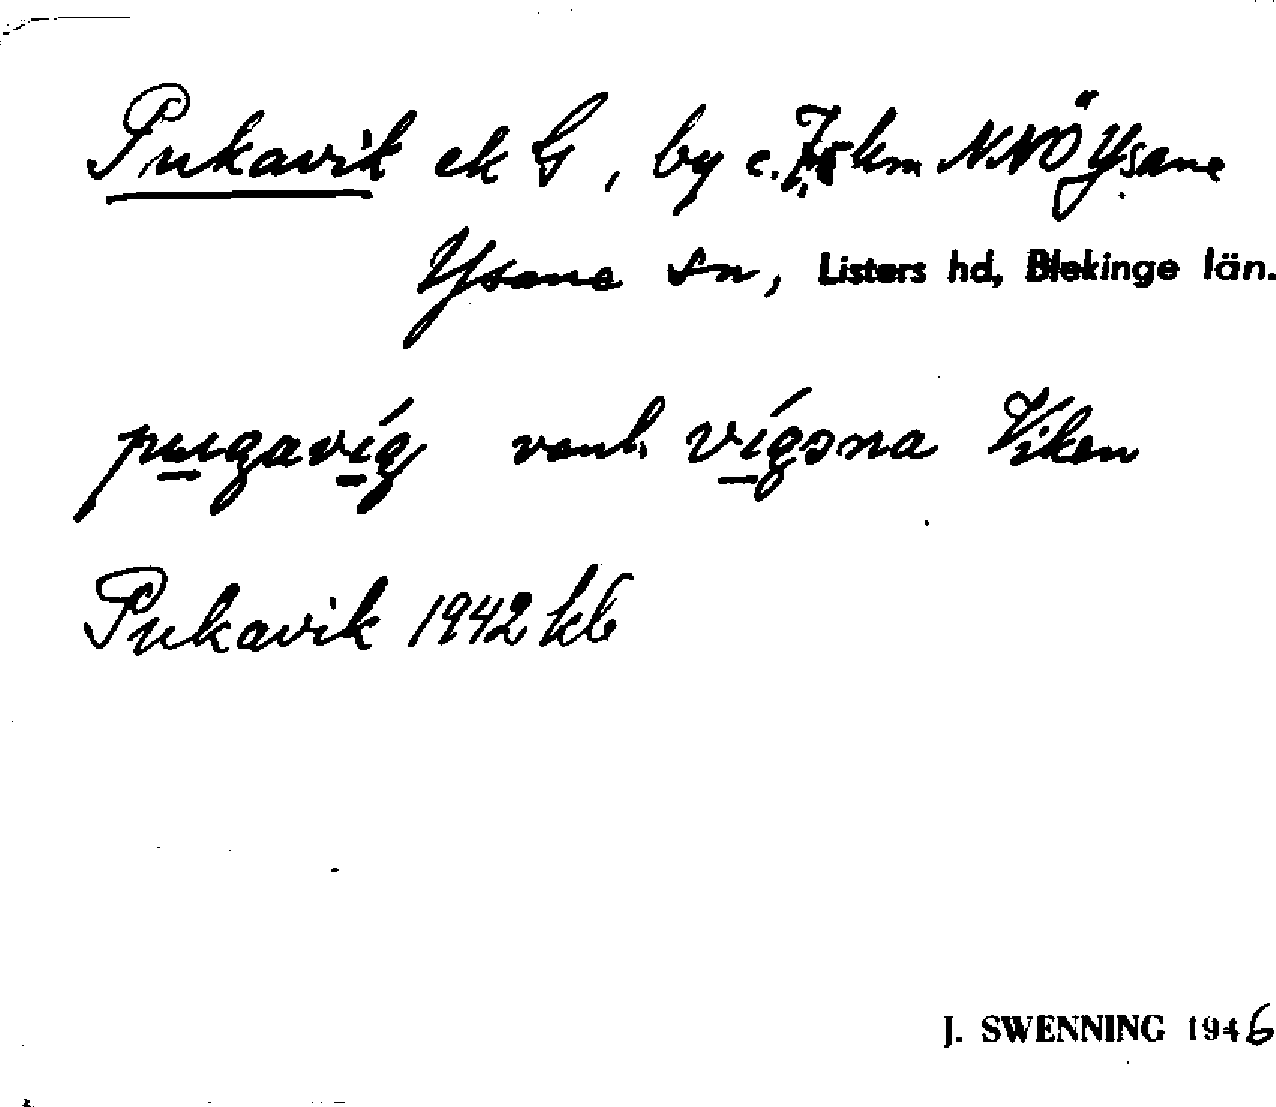 Pukavik ek G, by c. km NNÖ Ysane
Ysane sn, Listers hd, Blekinge län.
pugavíg vanl. vígəna Viken
Pukavik 1942 kb
J. SWENNING 1946